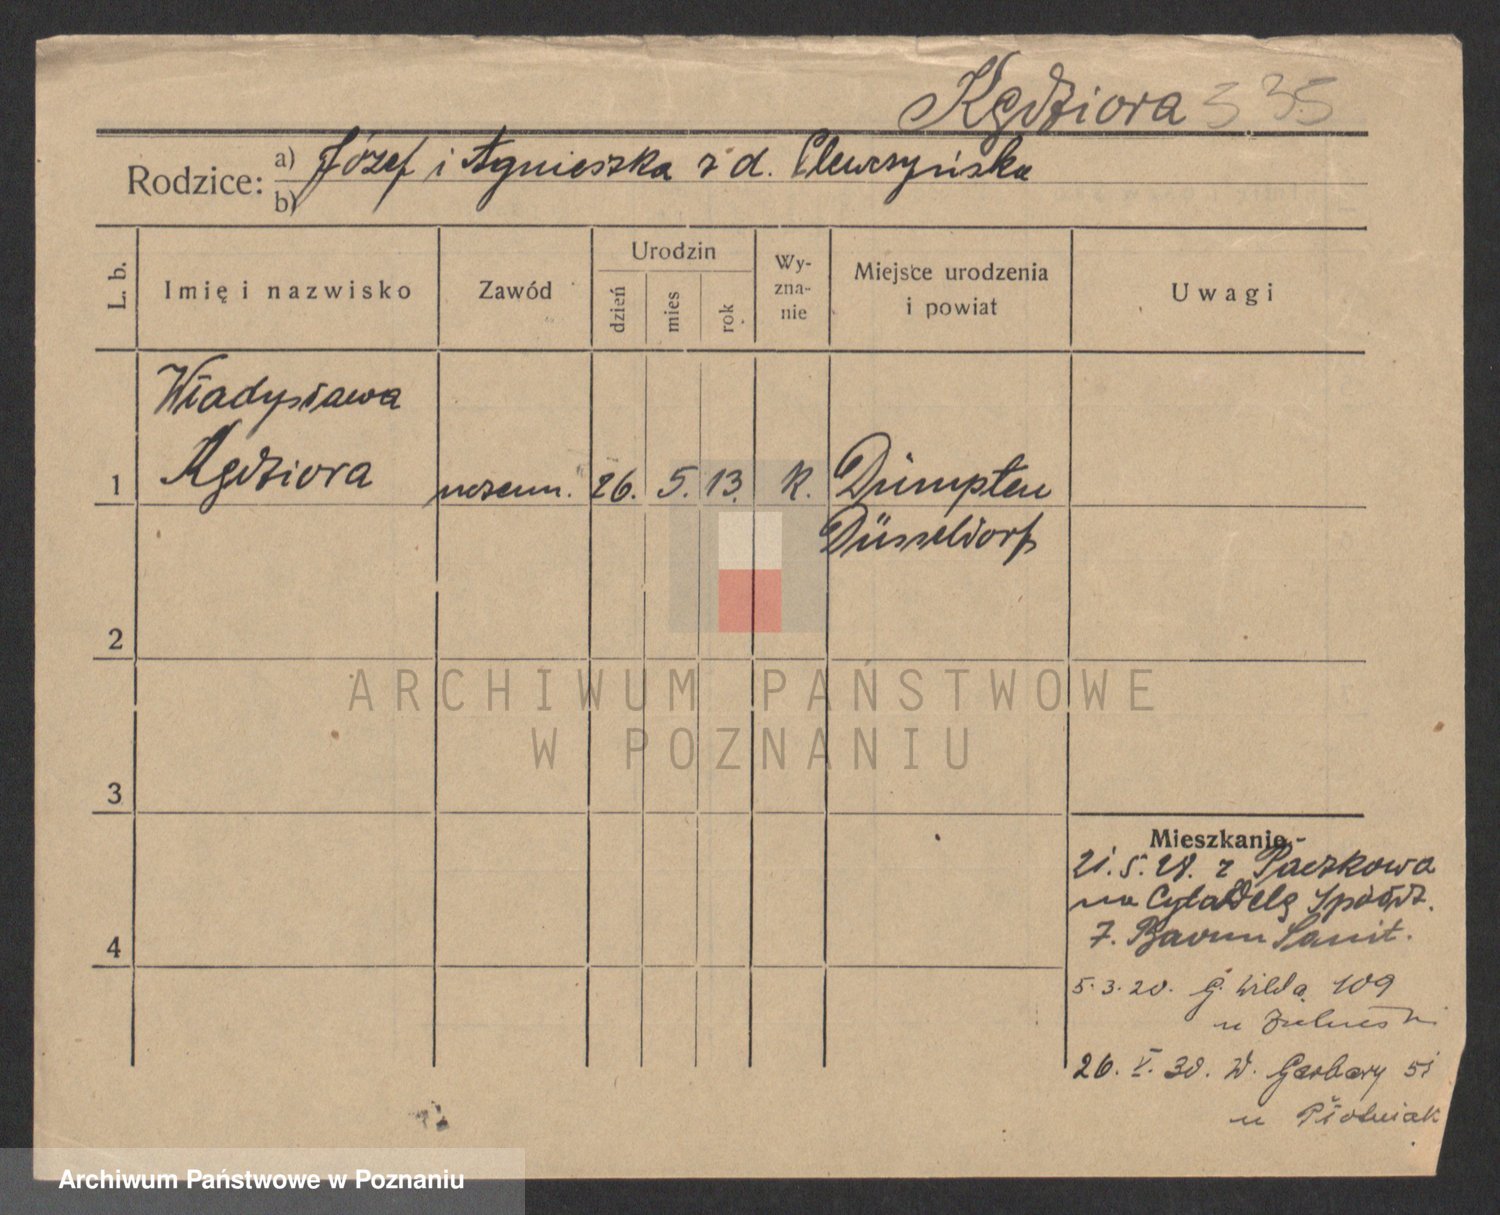 Kędziora 335
Rodzice: a) Józef i Agnieszka z d.
b)
L. b.
Imię i nazwisko
Zawód
Urodzin
dzień
mies
rok
Wy-
zna-
nie
Miejsce urodzenia
i powiat
Uwagi
Władysława
1 Kędziora 26. 5. 13. K. Dümpten
Düsseldorf
2
3
4
Mieszkanie
21. 5. z Paczkowa
na Cytadelę Spółdz.
7. Sanit.
5.3. G. Wilda 109
u
26. V. 30. W. Garbary 51
u
ARCHIWUM PAŃSTWOWE
W POZNANIU
Archiwum Państwowe w Poznaniu